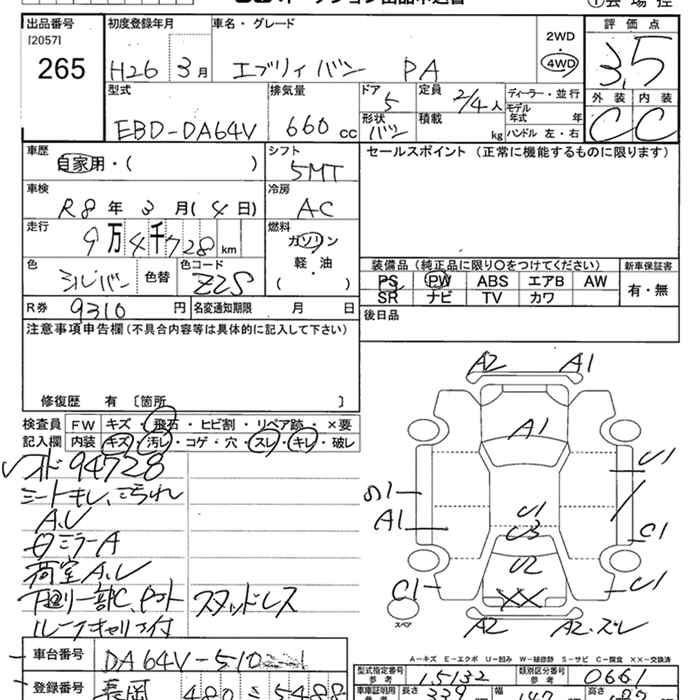 出品番号 初度登録年月 車名・グレード 2WD 評価点
[2057]
265 H26年 3月 エブリィバン PA 4WD 3.5
型式 排気量 ドア 5 定員 2/4人 ディーラー・並行 外装 内装
モデル年式 年
EBD-DA64V 660cc 形状 バン 積載 kg ハンドル 左・右 C C
車歴 自家用・( ) シフト 5MT セールスポイント (正常に機能するものに限ります)
車検 冷房
R8年 3月 (4日) AC
走行 燃料
9万4千728km ガソリン
軽・油
( )
色 シルバー 色替 色コード Z2S
装備品 (純正品に限り○をつけてください) 新車保証書
PS PW ABS エアB AW 有・無
SR ナビ TV カワ
R券 9310円 名変通知期限 月 日
後日品
注意事項申告欄(不具合内容等は具体的に記入して下さい)
修復歴 有 〔箇所 〕
検査員 FW キズ・飛石・ヒビ割・リペア跡・×要
記入欄 内装 キズ・汚レ・コゲ・穴・スレ・キレ・破レ
94728
シートキレ、
A.U
ミラーA
荷室A.U
スタッドレス
A2 A1
A1
U1
A1
U1
U3
C1
U2
C1 U1
XX
スペア
A2 A2・ズレ
A-キズ E-エクボ U-凹み W-補修跡 S-サビ C-腐食 XX-交換済
車台番号 DA64V-510
型式指定番号 参考 15132 類別区分番号 参考 0661
登録番号 長岡 480 5488
車庫証明用 長さ 339 幅 147 高さ